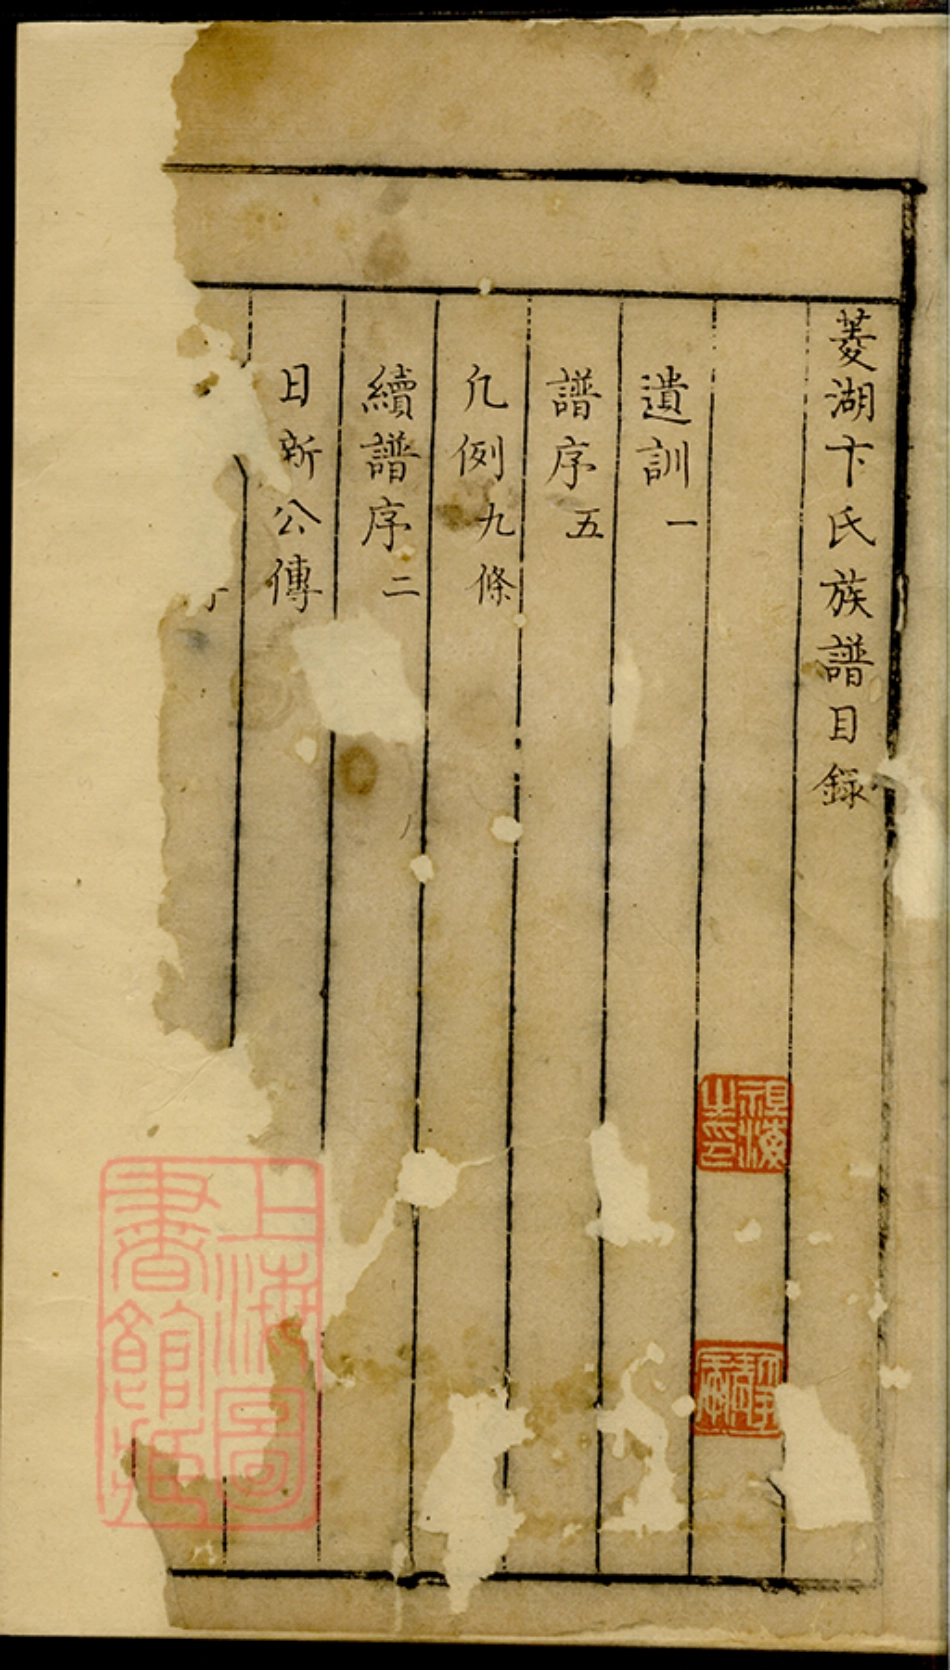 菱湖卞氏族譜目錄
遺訓一
譜序五
凡例九條
續譜序二
日新公傳
上海圖書館藏